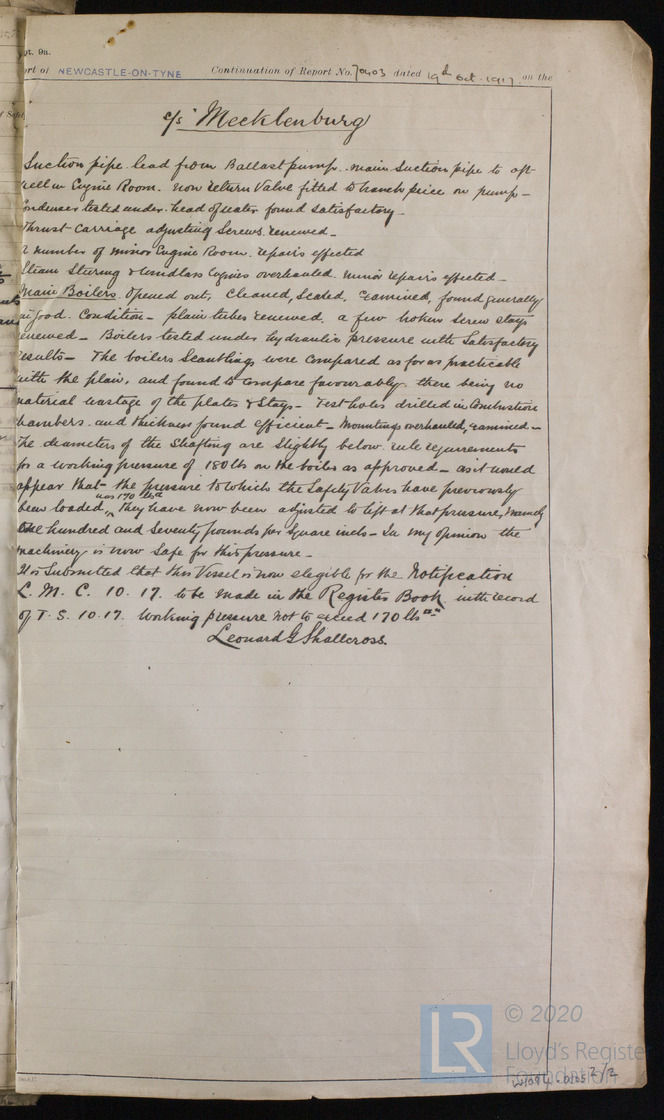 pt. 9a.
ort of NEWCASTLE-ON-TYNE Continuation of Report No. 70403 dated 19th Oct. 1917 on the
s/s Mecklenburg
Suction pipe lead from Ballast pump. main Suction pipe to aft
well in Engine Room. non return Valve fitted to branch peice on pump -
Condenser tested under head of water found satisfactory -
Thrust Carriage adjusting Screws renewed -
A number of minor Engine Room repairs effected
Steam Steering & windlass Engines overhauled minor repairs effected -
Main Boilers. Opened out, cleaned, Scaled, Examined, found generally
in good Condition - plain tubes renewed a few broken screw stays
renewed - Boilers tested under hydraulic pressure with Satisfactory
results - The boilers Scantlings were compared as far as practicable
with the plan, and found to compare favourably there being no
material wastage of the plates & Stays - Test holes drilled in Combustion
Chambers. and thickness found efficient - Mountings overhauled, examined -
The diameters of the Shafting are slightly below rule requirements
for a working pressure of 180 lbs on the boiler as approved - as it would
appear that the pressure to which the Safety Valves have previously
been loaded, was 170 lbs They have now been adjusted to lift at that pressure, namely
One hundred and Seventy pounds per Square inch - In my opinion the
machinery is now Safe for this pressure -
It is Submitted that this Vessel is now elegible for the Notification
L. M. C. 10. 17. to be made in the Register Book with record
of T. S. 10.17. Working pressure not to exceed 170 lbs
Leonard G Shallcross.
LR
© 2020
Lloyd's Register
Foundation
W1094-0105 2/2